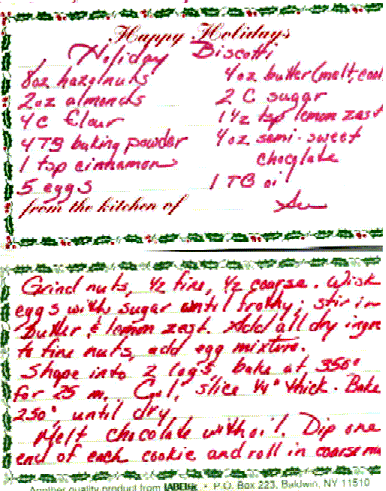 Happy Holidays
Holiday Biscotti
8oz hazelnuts
2oz almonds
4C flour
4 TB baking powder
1 tsp cinnamon
5 eggs
4oz butter (melt, cool
2 C sugar
1½ tsp lemon zest
4oz semi-sweet
chocolate
1 TB oil
from the kitchen of
Grind nuts, ½ fine, ½ coarse. Wisk
eggs with sugar until frothy; stir in
butter & lemon zest. Add all dry ingre
to fine nuts, add egg mixture.
Shape into 2 logs bake at 350°
for 25 m. Cool, slice ¼" thick. Bake
250° until dry
Melt chocolate with oil. Dip one
end of each cookie and roll in coarse nu
Another quality product from LABELS • P.O. Box 223, Baldwin, NY 11510